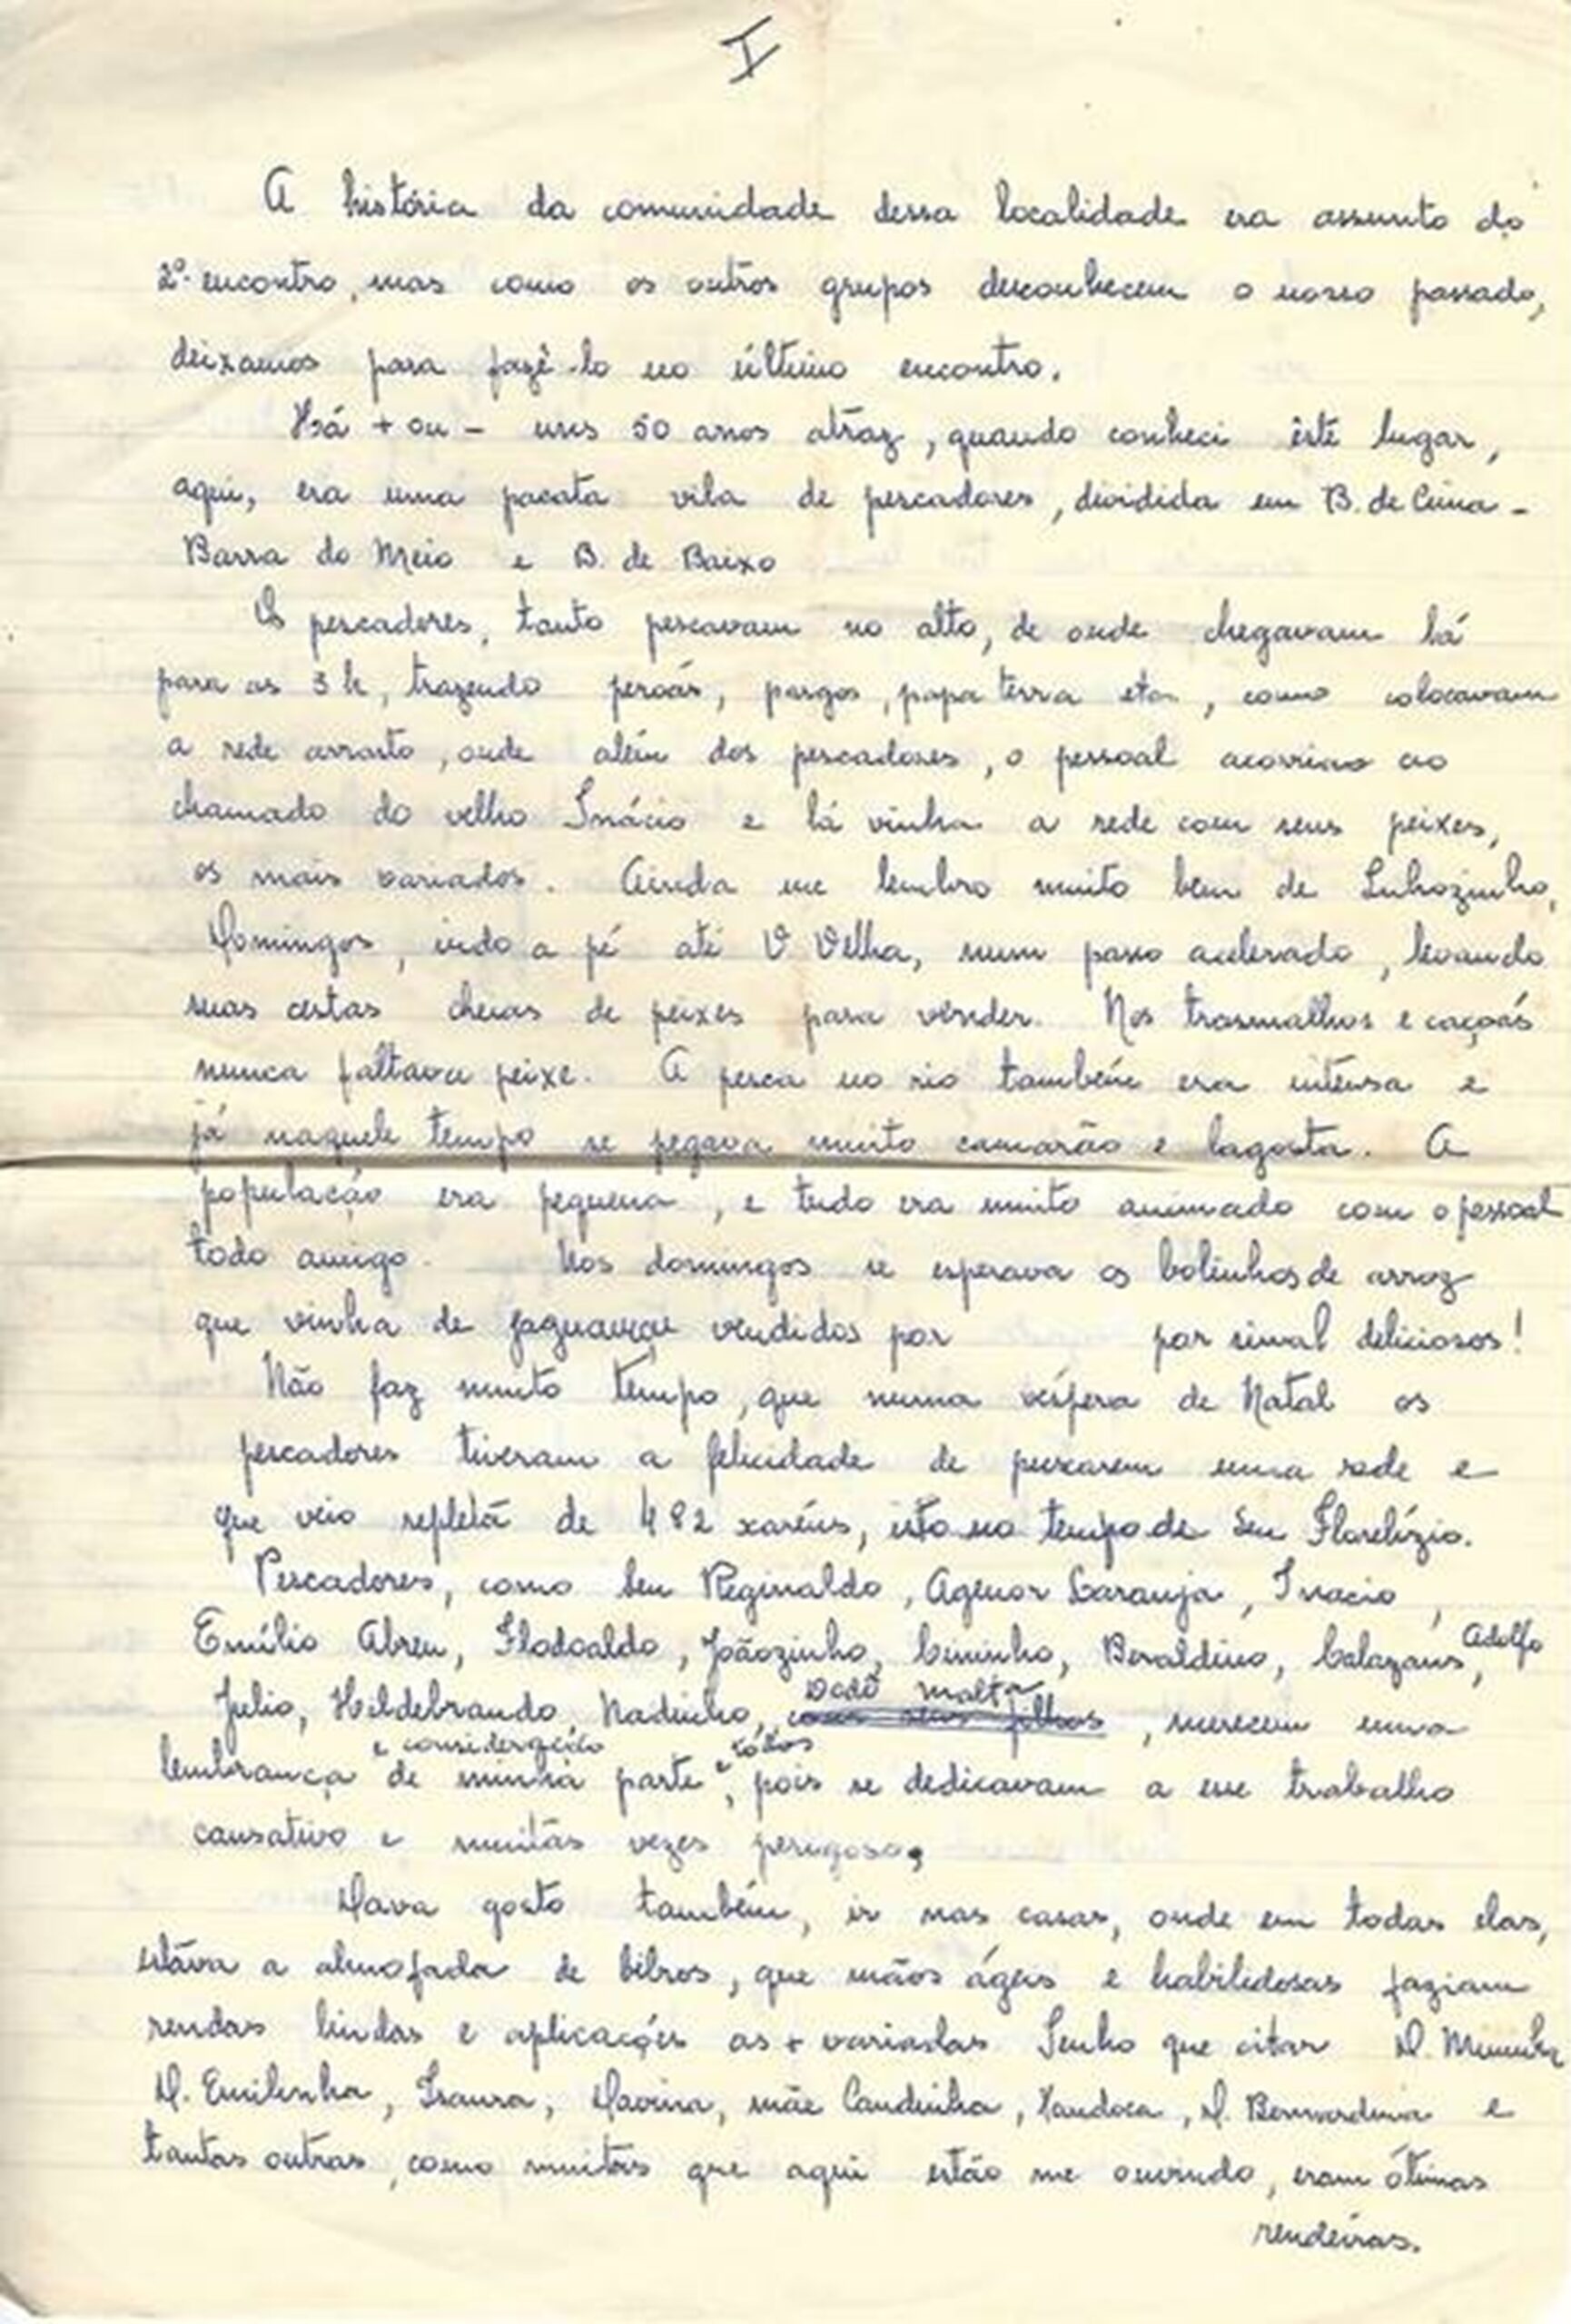 I
A história da comunidade dessa localidade era assunto do
2º encontro, mas como os outros grupos desconhecem o nosso passado,
deixamos para fazê-lo no último encontro.
Há + ou - uns 50 anos atráz, quando conheci êste lugar,
aqui, era uma pacata vila de pescadores, dividida em B. de Cima -
Barra do Meio e B. de Baixo
Os pescadores, tanto pescavam no alto, de onde chegavam lá
para as 3 h, trazendo peroás, pargos, papa terra etc, como colocavam
a rede arrasto, onde além dos pescadores, o pessoal acorria ao
chamado do velho Inácio e lá vinha a rede com seus peixes,
os mais variados. Ainda me lembro muito bem de
Domingos, indo a pé até V Velha, num passo acelerado, levando
suas cestas cheias de peixes para vender. Nos trasmalhos e caçoás
nunca faltava peixe. A pesca no rio também era intensa e
já naquele tempo se pegava muito camarão e lagosta. A
população era pequena, e tudo era muito animado com o pessoal
todo amigo. Nos domingos se esperava os bolinhos de arroz
que vinha de vendidos por por sinal deliciosos!
Não faz muito tempo, que numa véspera de Natal os
pescadores tiveram a felicidade de puxarem uma rede e
que veio repleta de 482 xaréus, isto no tempo de Seu Florelízio.
Pescadores, como Seu Reginaldo, Agenor Laranja, Inacio,
Emílio Abreu, Flodoaldo, Joãozinho, Cininho, Beraldino, Calazans, Adolfo
Julio, Hildebrando, Nadinho, Dodô Malta com seus filhos, merecem uma
lembrança e consideração de minha parte e todos, pois se dedicavam a esse trabalho
cansativo e muitas vezes perigoso.
Dava gosto também, ir nas casas, onde em todas elas,
estava a almofada de bilros, que mãos ágeis e habilidosas faziam
rendas lindas e aplicações as + variadas Tenho que citar D.
D. Emilinha, Isaura, Davina, mãe Candinha, Xandoca, D. Bernardina e
tantas outras, como muitas que aqui estão me ouvindo, eram ótimas
rendeiras.